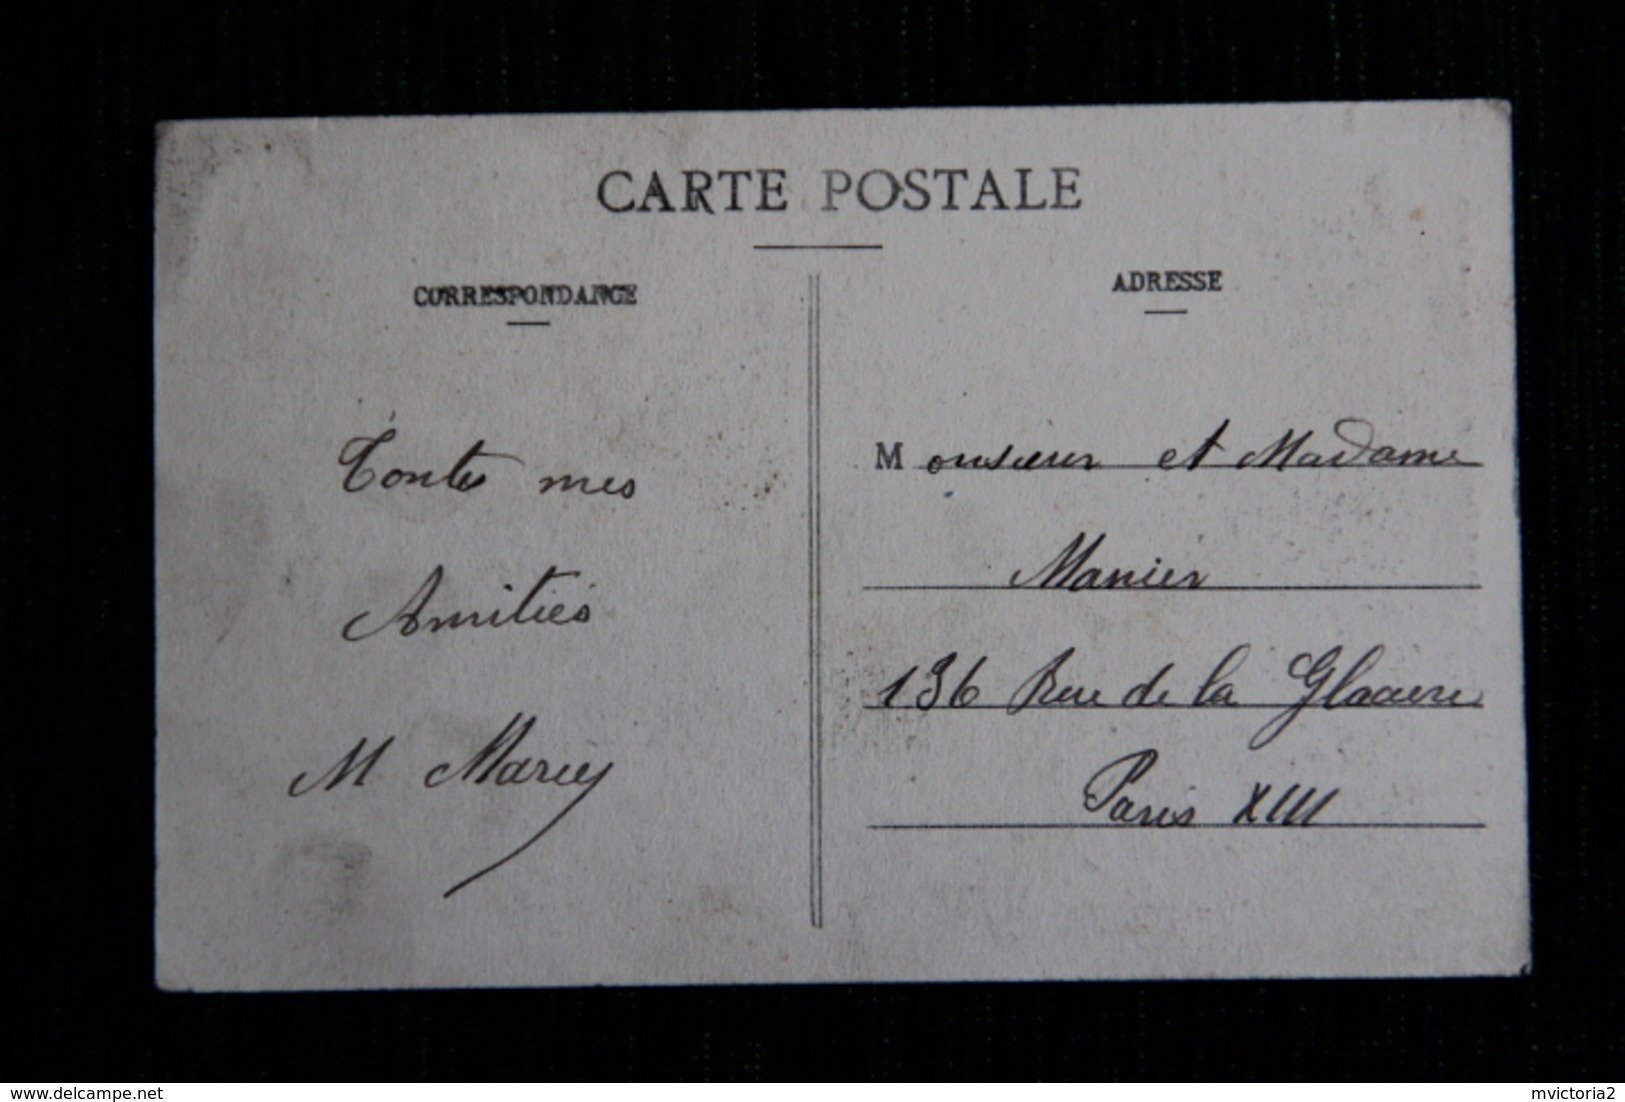 CARTE POSTALE
CORRESPONDANCE
Toutes mes
Amitiés
M Marcy
ADRESSE
Monsieur et Madame
Manier
136 Rue de la Glaciere
Paris XIII
delcampe.net
mvictoria2